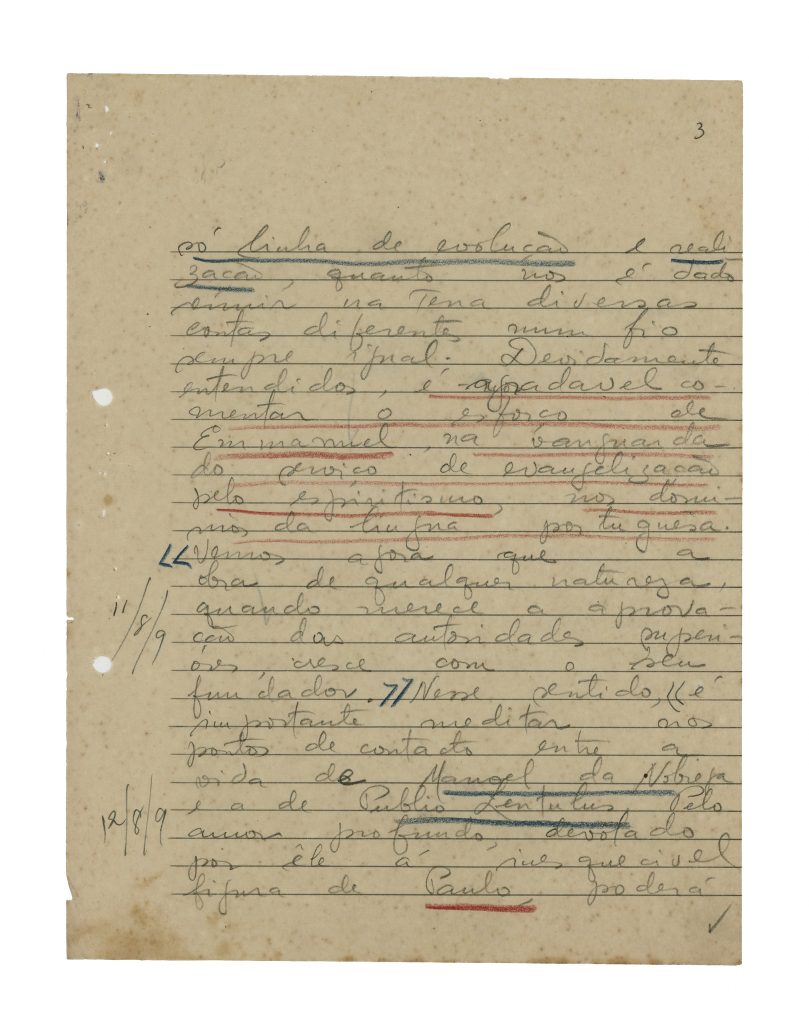 3
só linha de evolução e reali
zação, quanto nos é dado
reunir na Terra diversas
contas diferentes num fio
sempre igual. Devidamente
entendidos, é agradavel co-
mentar o esforço de
Emmanuel, na vanguarda
do serviço de evangelização
pelo espiritismo, nos domi-
nios da lingua portuguesa.
"Vemos agora que a
obra de qualquer natureza,
quando merece a aprova-
11/8/9
ção das autoridades superi-
óres, cresce com o seu
fundador." Nesse sentido, "é
importante meditar nos
pontos de contacto entre a
vida de Manoel da Nobrega
12/8/9
e a de Publio Lentulus. Pelo
amor profundo, devotado
por êle á inesquecivel
figura de Paulo, poderá